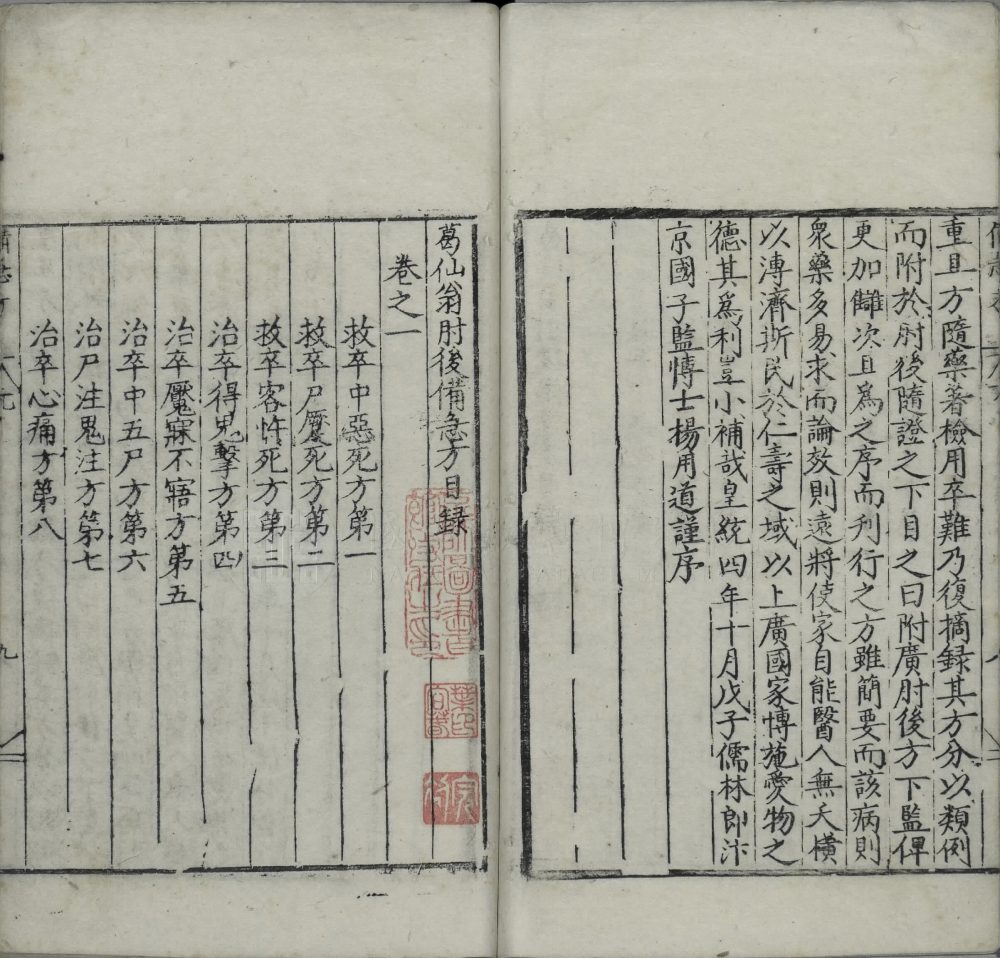 重且方隨藥著檢用卒難乃復摘録其方分以類例
而附於肘後隨證之下目之曰附廣肘後方下監俾
更加讎次且爲之序而刋行之方雖簡要而該病則
衆藥多易求而論效則遠將使家自能醫人無夭横
以溥濟斯民於仁壽之域以上廣國家愽施愛物之
德其爲利豈小補哉皇統四年十月戊子儒林郎汴
京國子監愽士楊用道謹序
葛仙翁肘後備急方目録
卷之一
救卒中惡死方第一
救卒尸蹷死方第二
救卒客忤死方第三
治卒得鬼擊方第四
治卒魘寐不寤方第五
治卒中五尸方第六
治尸注鬼注方第七
治卒心痛方第八
九